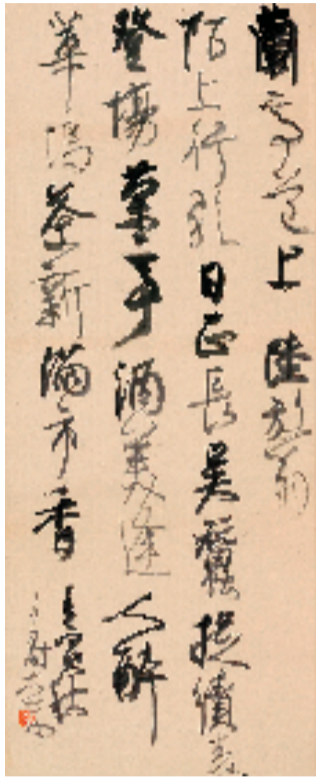 蘭亭道上 陸放翁
陌上行歌日正長吳蠶捉績麥
登場蘭亭酒美逢人醉
華塢茶新滿市香